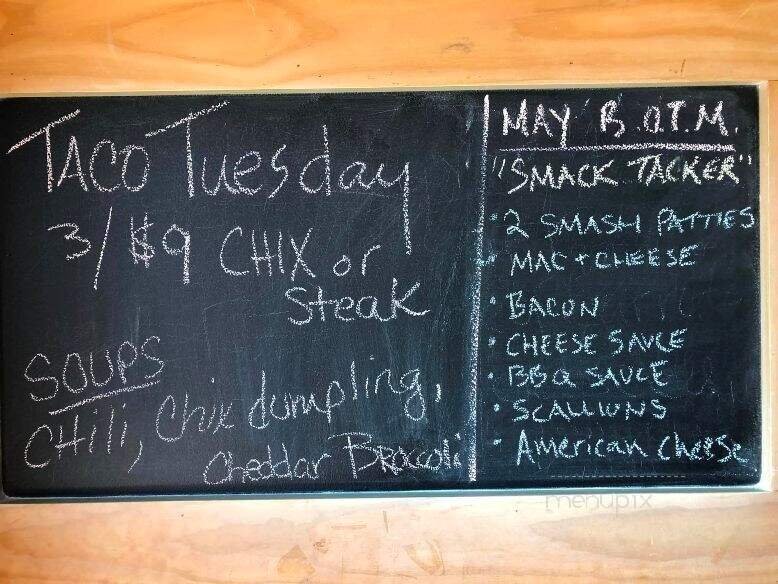 TACO Tuesday
3/$9 CHIX or
Steak
SOUPS
CHili, Chix dumpling,
Cheddar Broccoli
MAY B.O.T.M.
"SMACK TACKER"
• 2 SMASH PATTIES
• MAC + CHEESE
• BACON
• CHEESE SAUCE
• BBQ SAUCE
• SCALLIONS
• American cheese
menupix